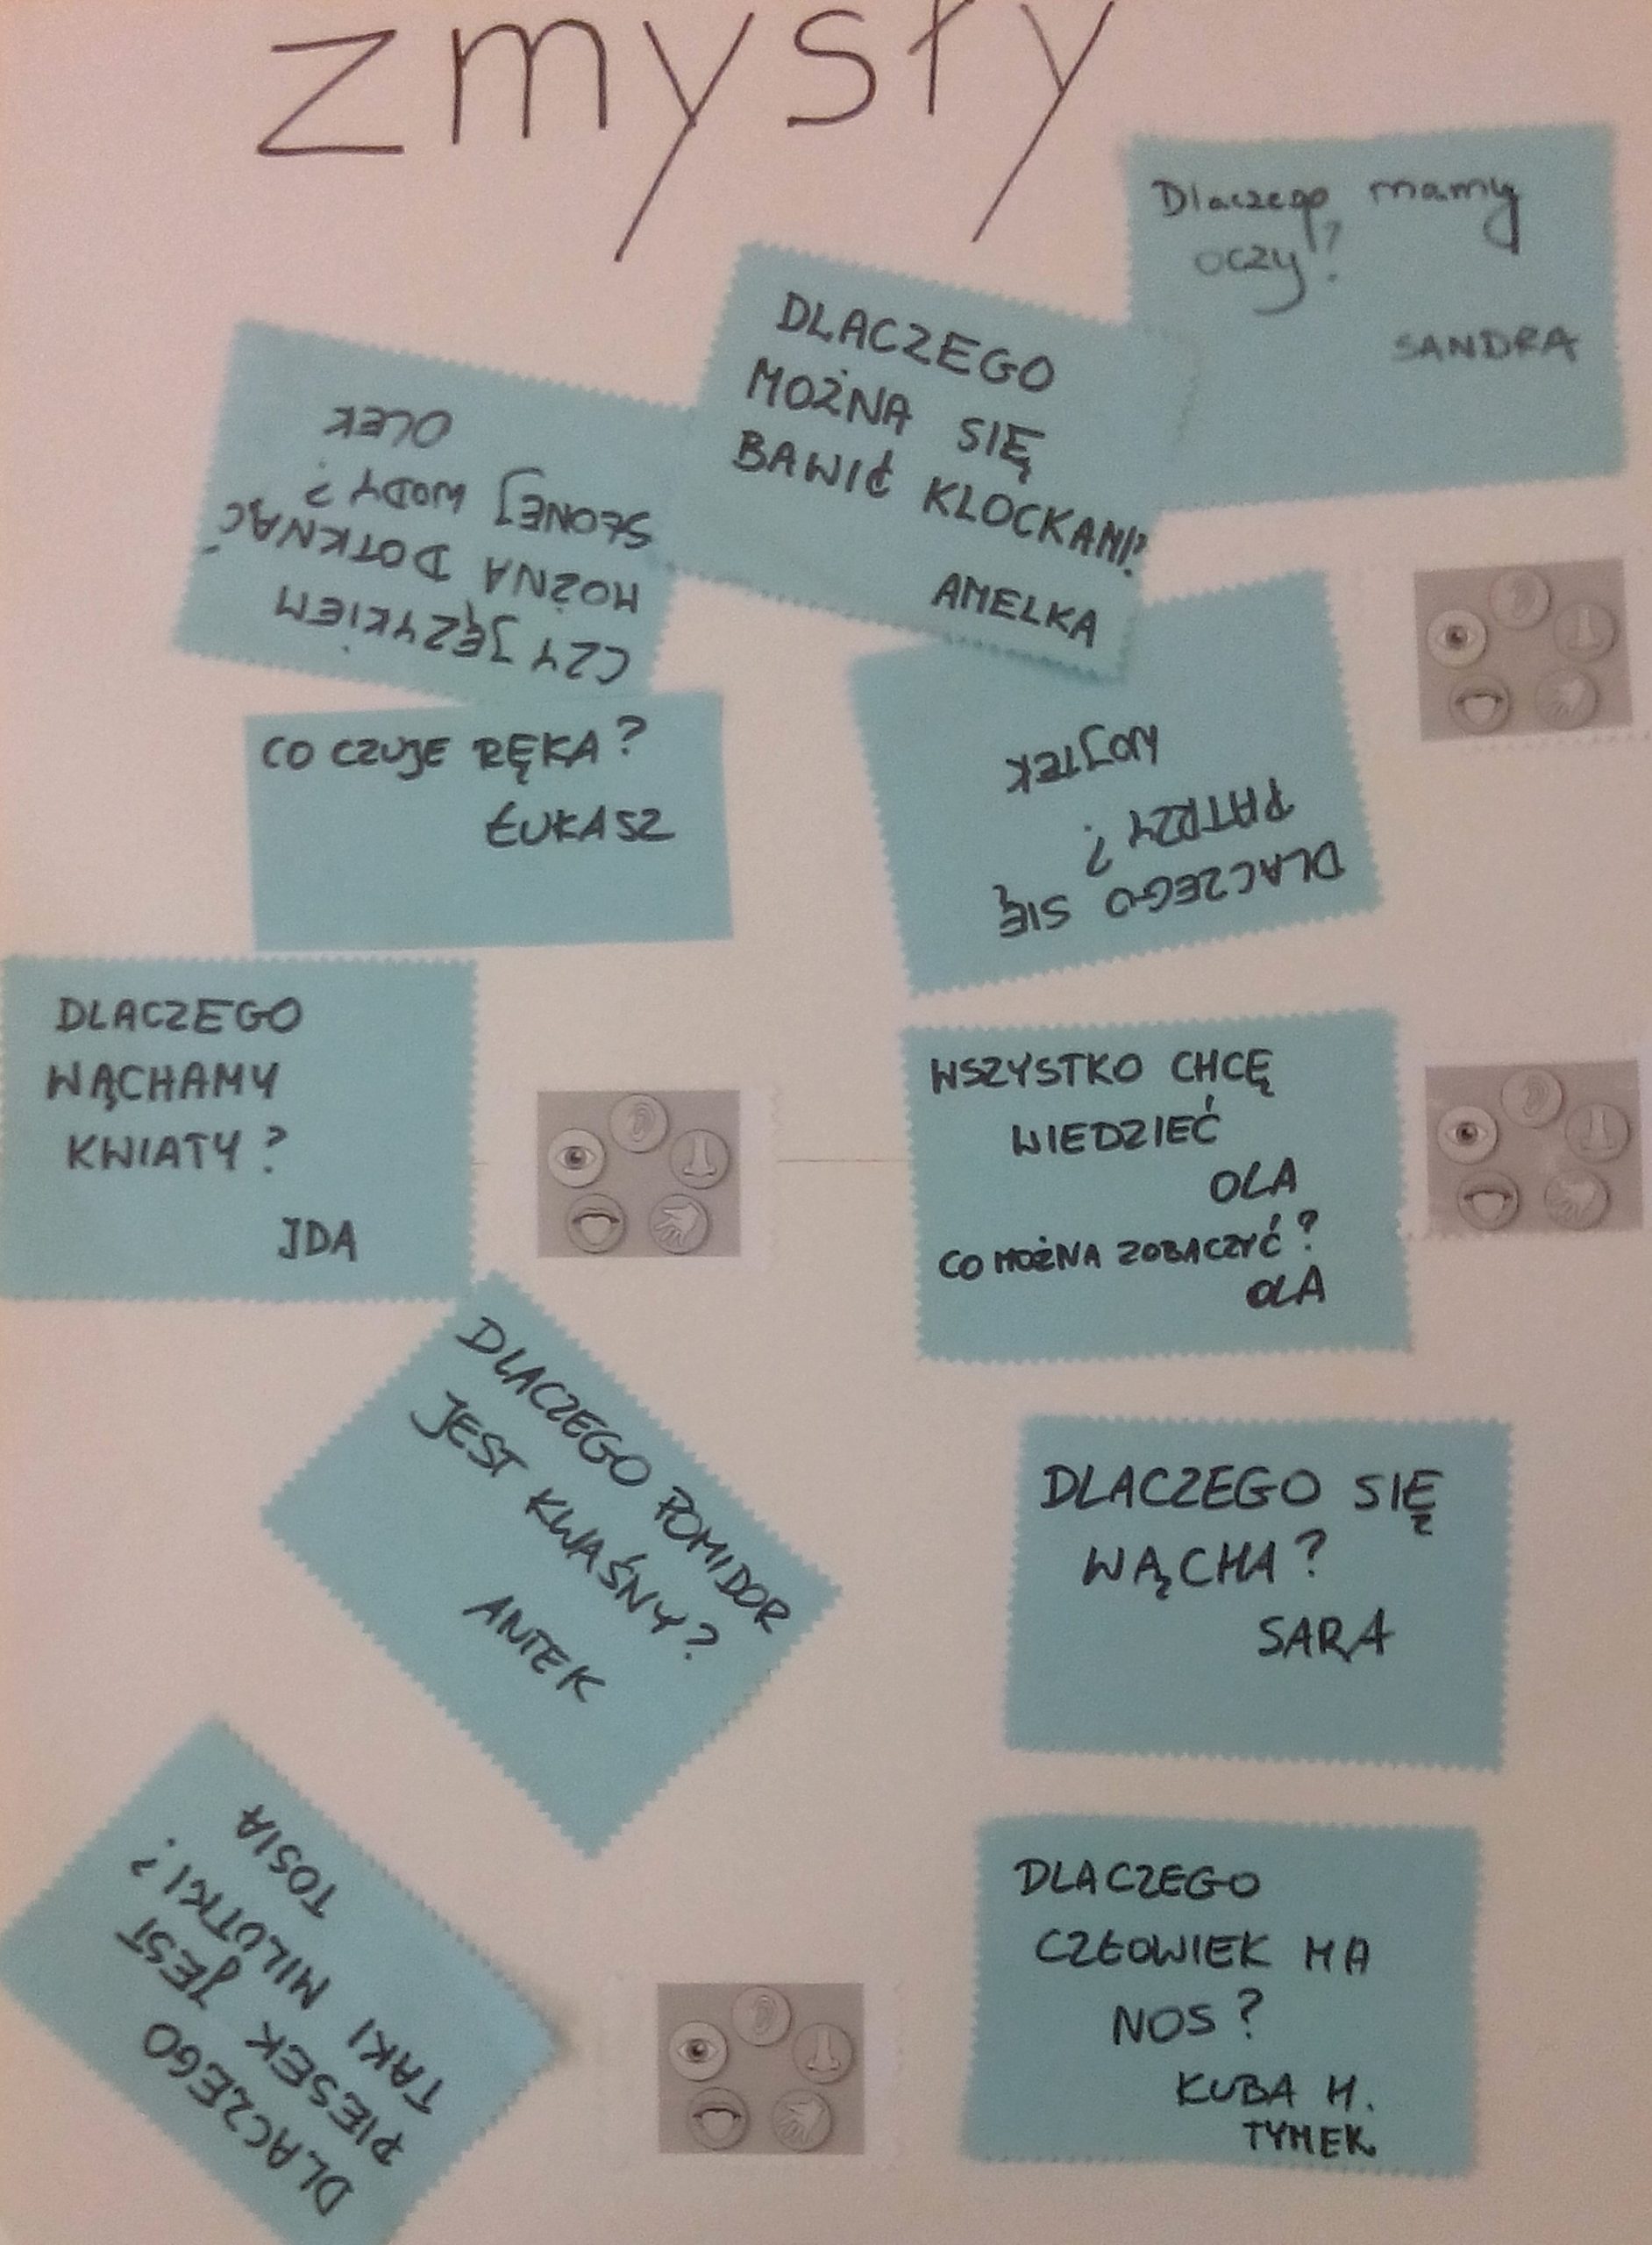 zmysły
Dlaczego mamy
oczy?
SANDRA
DLACZEGO
MOŻNA SIĘ
BAWIĆ KLOCKAMI?
AMELKA
CZY JĘZYKIEM
MOŻNA DOTKNĄĆ
SŁONEJ WODY?
OLEK
CO CZUJE RĘKA?
ŁUKASZ
DLACZEGO SIĘ
PATRZY?
WOJTEK
DLACZEGO
WĄCHAMY
KWIATY?
IDA
WSZYSTKO CHCĘ
WIEDZIEĆ
OLA
CO MOŻNA ZOBACZYĆ?
OLA
DLACZEGO POMIDOR
JEST KWAŚNY?
ANTEK
DLACZEGO SIĘ
WĄCHA?
SARA
DLACZEGO
PIESEK JEST
TAKI MILUTKI?
TOSIA
DLACZEGO
CZŁOWIEK MA
NOS?
KUBA M.
TYMEK